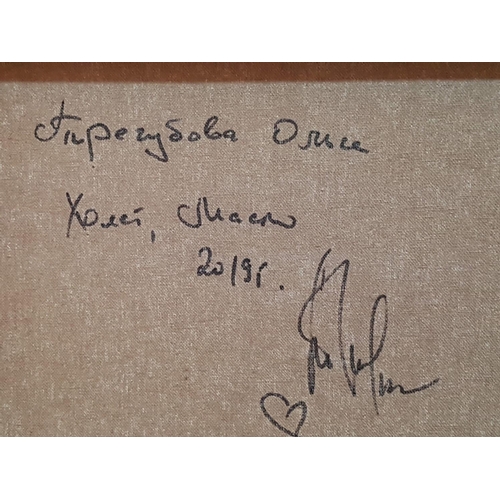 Трегубова Ольга
Холст, Масло
2019г.